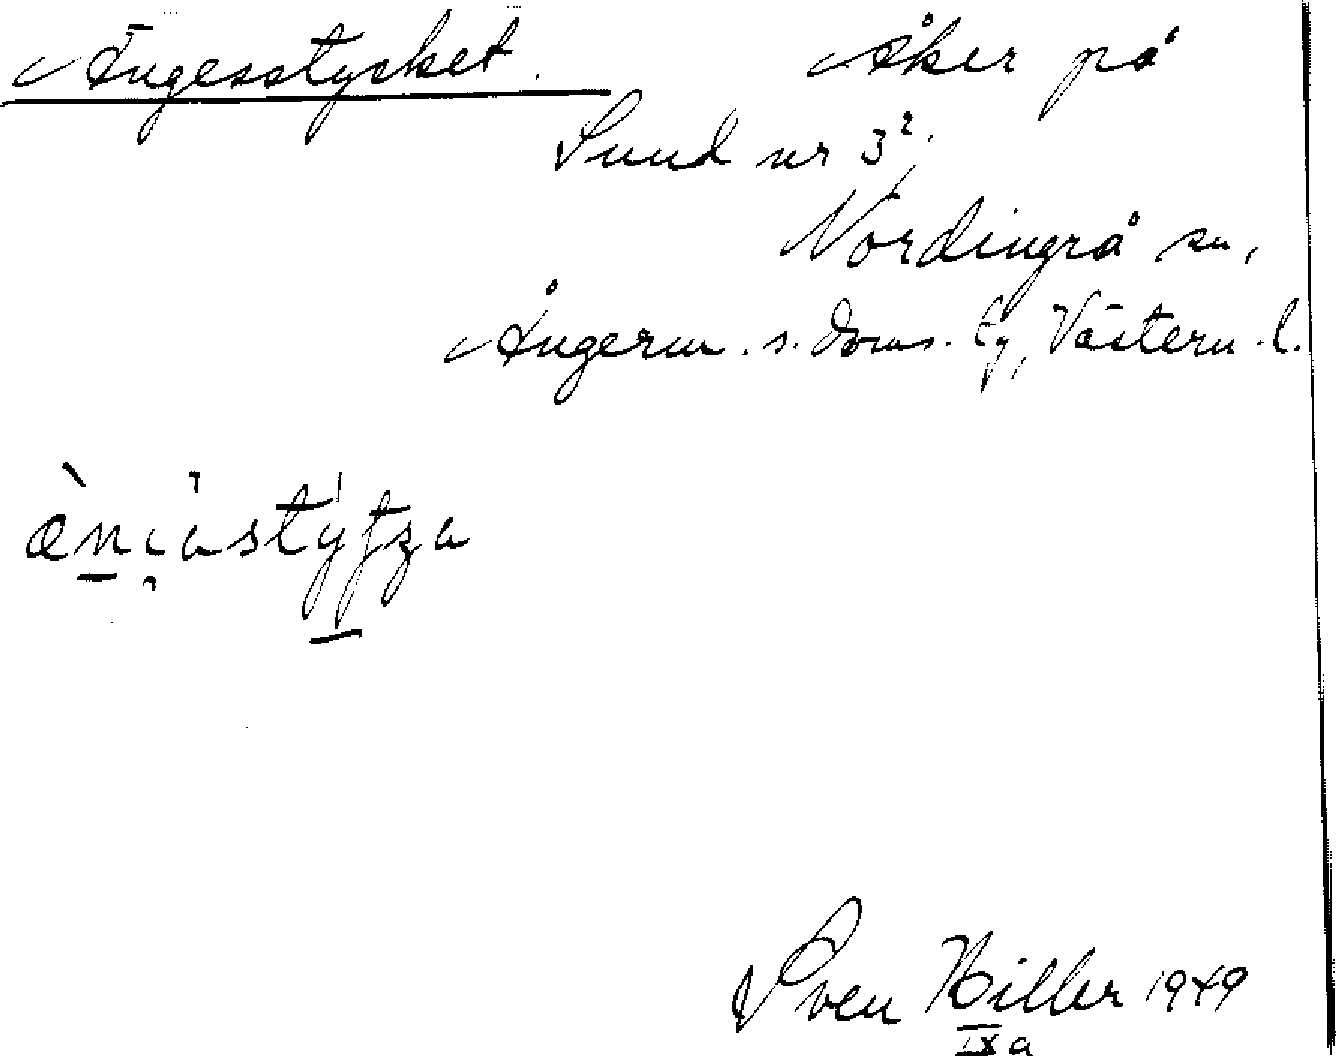 Ängesstycket. Åker på
Sund nr 3²,
Nordingrå sn,
Ångerm. s. doms. tg, Västern. l.
Sven Hiller 1949
IXa